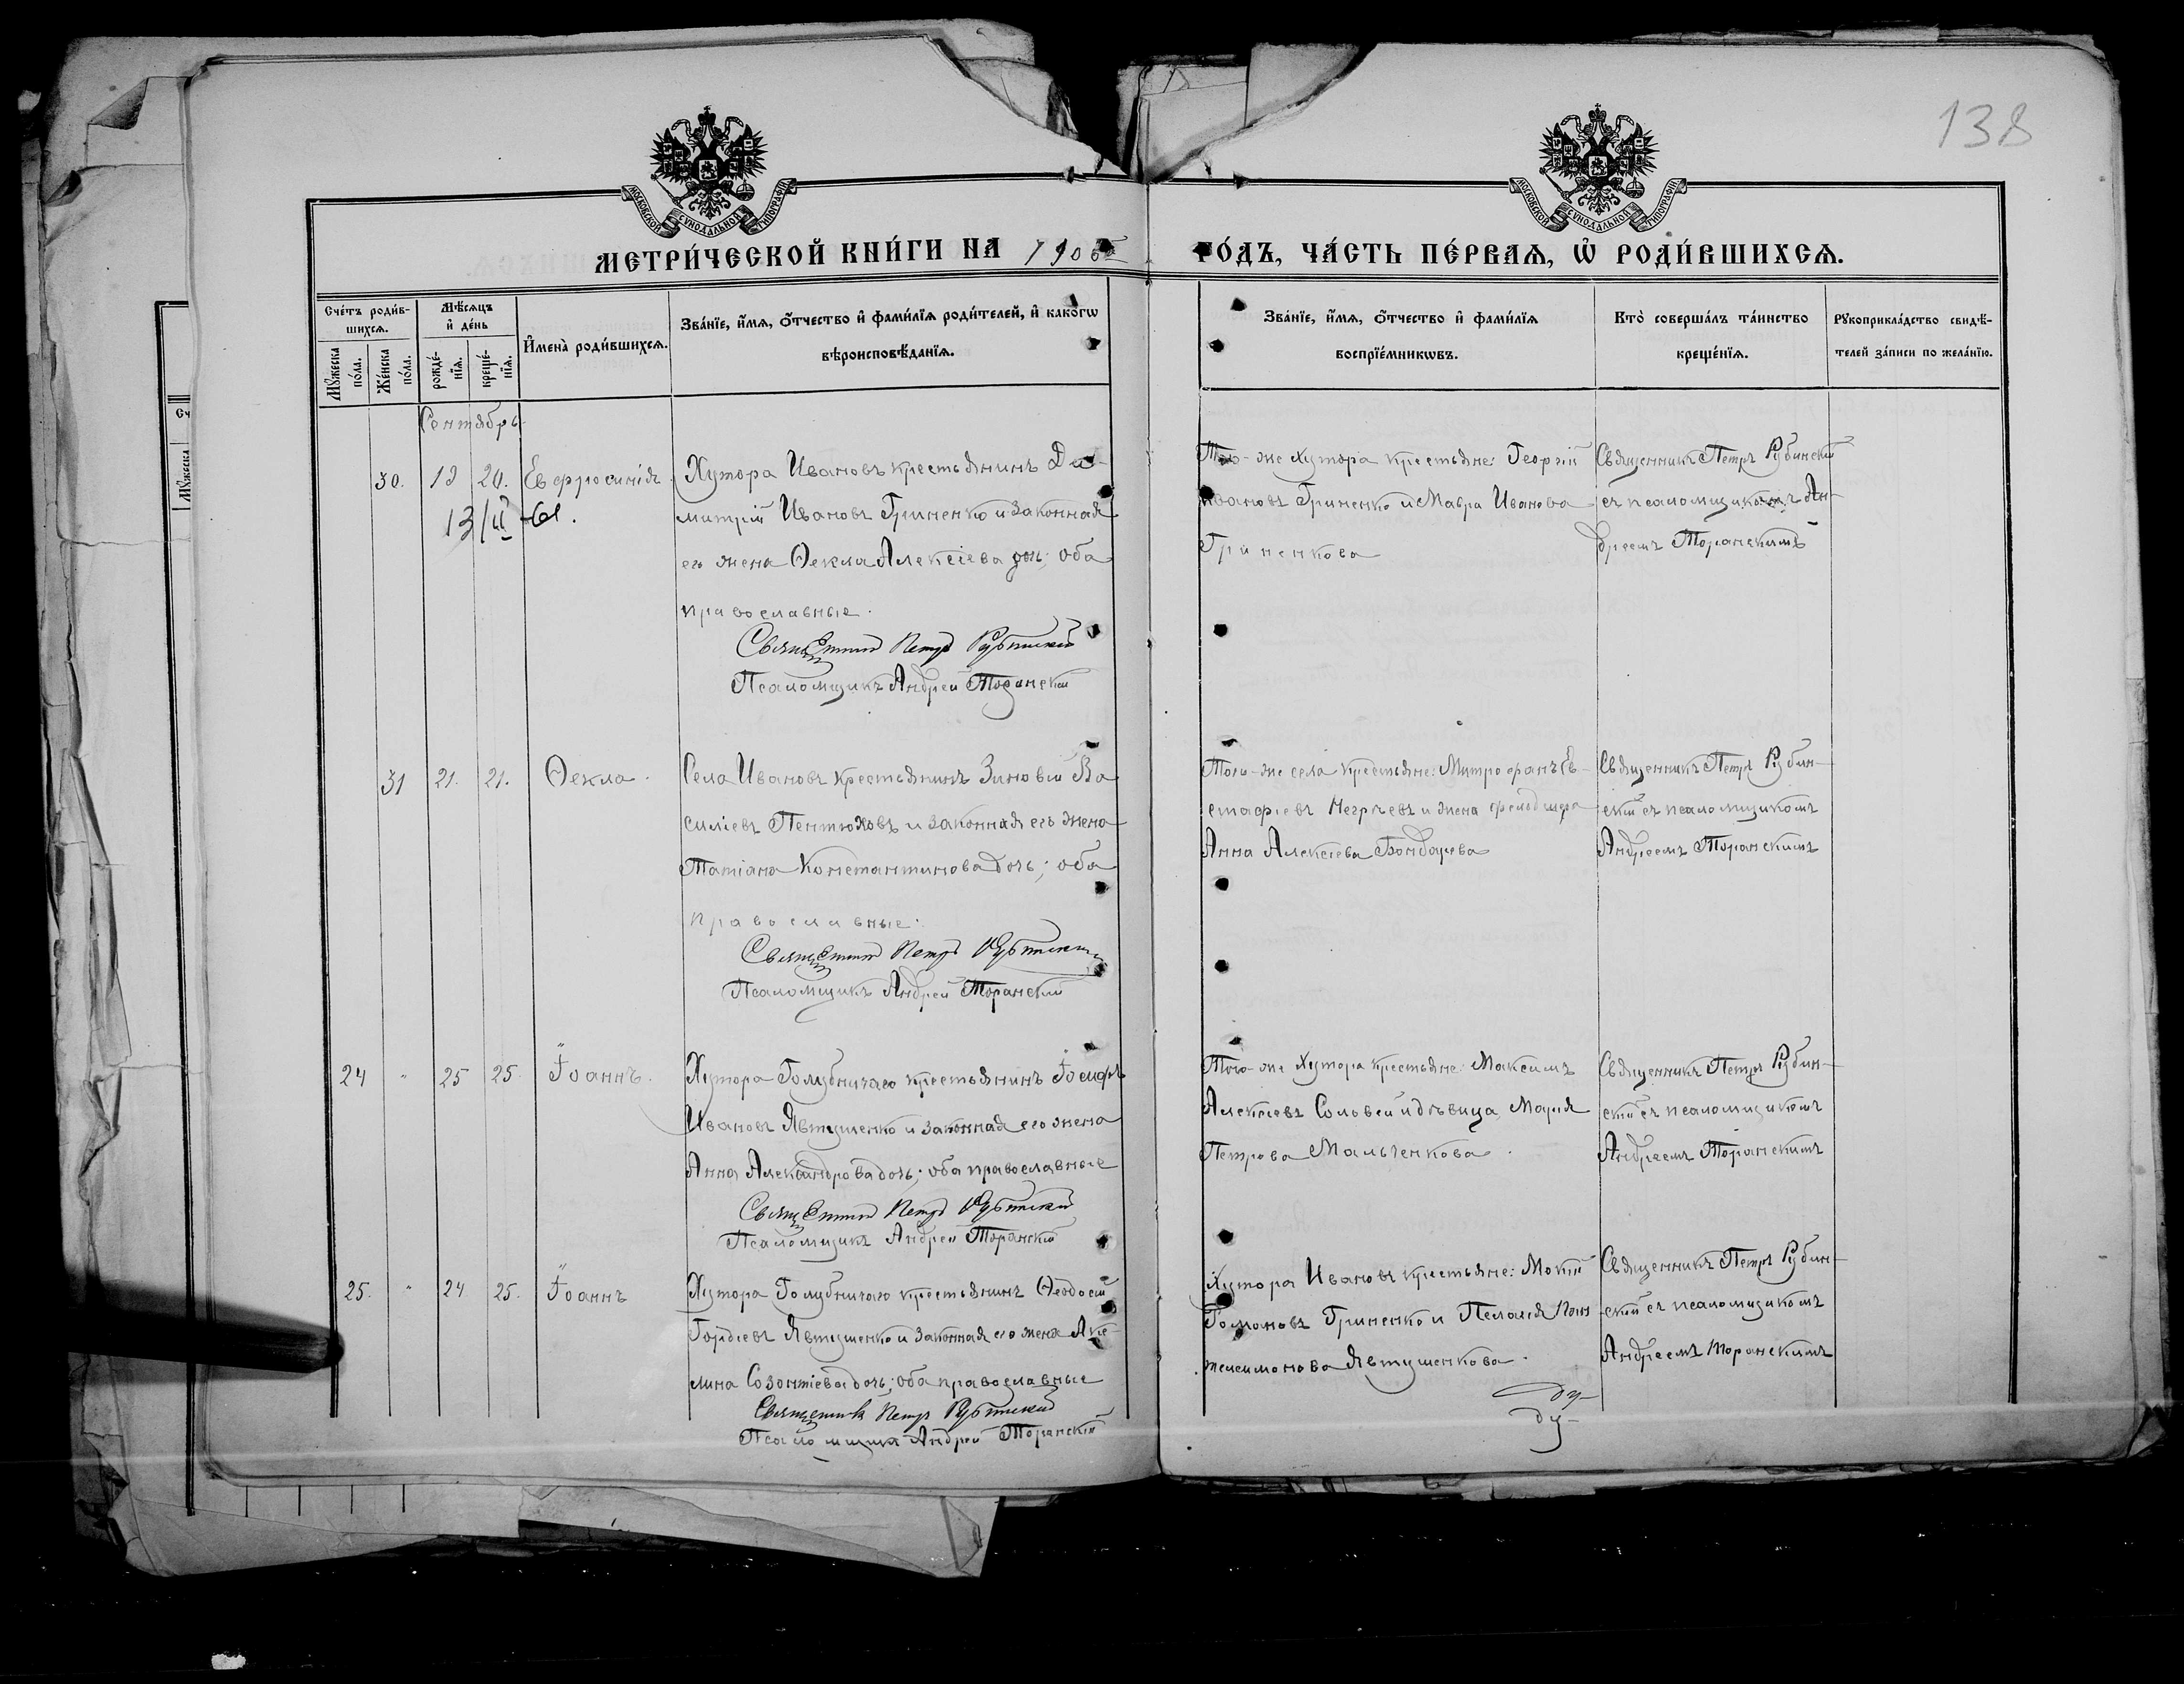 138
МОСКОВСКОЙ СУНОДАЛЬНОЙ ТИПОГРАФІИ
МОСКОВСКОЙ СУНОДАЛЬНОЙ ТИПОГРАФІИ
МЕТРИ́ЧЕСКОЙ КНИ́ГИ НА 190
ГО́ДЪ, ЧА́СТЬ ПЕ́РВАѦ, Ѡ҆ РОДИ́ВШИХСѦ.
Сче́тъ роди́в-
шихсѧ.
Мꙋ́жеска
по́ла.
Же́нска
по́ла.
Мѣ́сѧцъ
и҆ де́нь
рожде́-
нїѧ.
креще́-
нїѧ.
И҆мена̀ роди́вшихсѧ.
Зва́нїе, и҆́мѧ, ѻ҆́тчество и҆ фами́лїѧ роди́телей, и҆ како́гѡ
вѣроисповѣ́данїѧ.
Зва́нїе, и҆́мѧ, ѻ҆́тчество и҆ фами́лїѧ
воспрїе́мникѡвъ.
Кто̀ соверша́лъ та́инство
креще́нїѧ.
Рꙋкоприкла́дство свидѣ́-
телей за́писи по жела́нїю.
Сентябрь
30. 20. Евфросинія.
Хутора Ивановъ крестьянинъ Ди-
митрій Ивановъ Гриненко и законная
его жена Ѳекла Алексіева дочь; оба
православные.
Священникъ Петръ Рубинскій
Псаломщикъ Андрей Торанскій
Того-же хутора крестьяне: Георгій
Ивановъ Гриненко и Мавра Иванова
Гриненкова
Священникъ Петръ Рубинскій
съ псаломщикомъ Ан-
дреемъ Торанскимъ
31 21. 21. Ѳекла.
Села Ивановъ крестьянинъ Зиновій Ва
силіевъ Пентюховъ и законная его жена
Татіана Константинова дочь; оба
православные.
Священникъ Петръ Рубинскій
Псаломщикъ Андрей Торанскій
Того-же села крестьяне: Митрофанъ Ев-
стафіевъ и жена фельдшера
Анна Алексіева Бондарева
Священникъ Петръ Рубин-
скій съ псаломщикомъ
Андреемъ Торанскимъ
24 " 25 25. Іоаннъ.
Хутора Голубничаго крестьянинъ Іосифъ
Ивановъ Явтушенко и законная его жена
Анна Александрова дочь; оба православные
Священникъ Петръ Рубинскій
Псаломщикъ Андрей Торанскій
Того-же хутора крестьяне: Максимъ
Алексіевъ Соловей и дѣвица Марія
Петрова Мальченкова.
Священникъ Петръ Рубин-
скій съ псаломщикомъ
Андреемъ Торанскимъ
25. " 24 25. Іоаннъ
Хутора Голубничаго крестьянинъ Ѳеодосій
Гордіевъ Явтушенко и законная его жена Аки-
лина Созонтіева дочь; оба православные
Священникъ Петръ Рубинскій
Псаломщикъ Андрей Торанскій
Хутора Ивановъ крестьяне: Мокій
Гриненко и Пелагія Пан
телеимонова Явтушенкова.
Священникъ Петръ Рубин-
скій съ псаломщикомъ
Андреемъ Торанскимъ